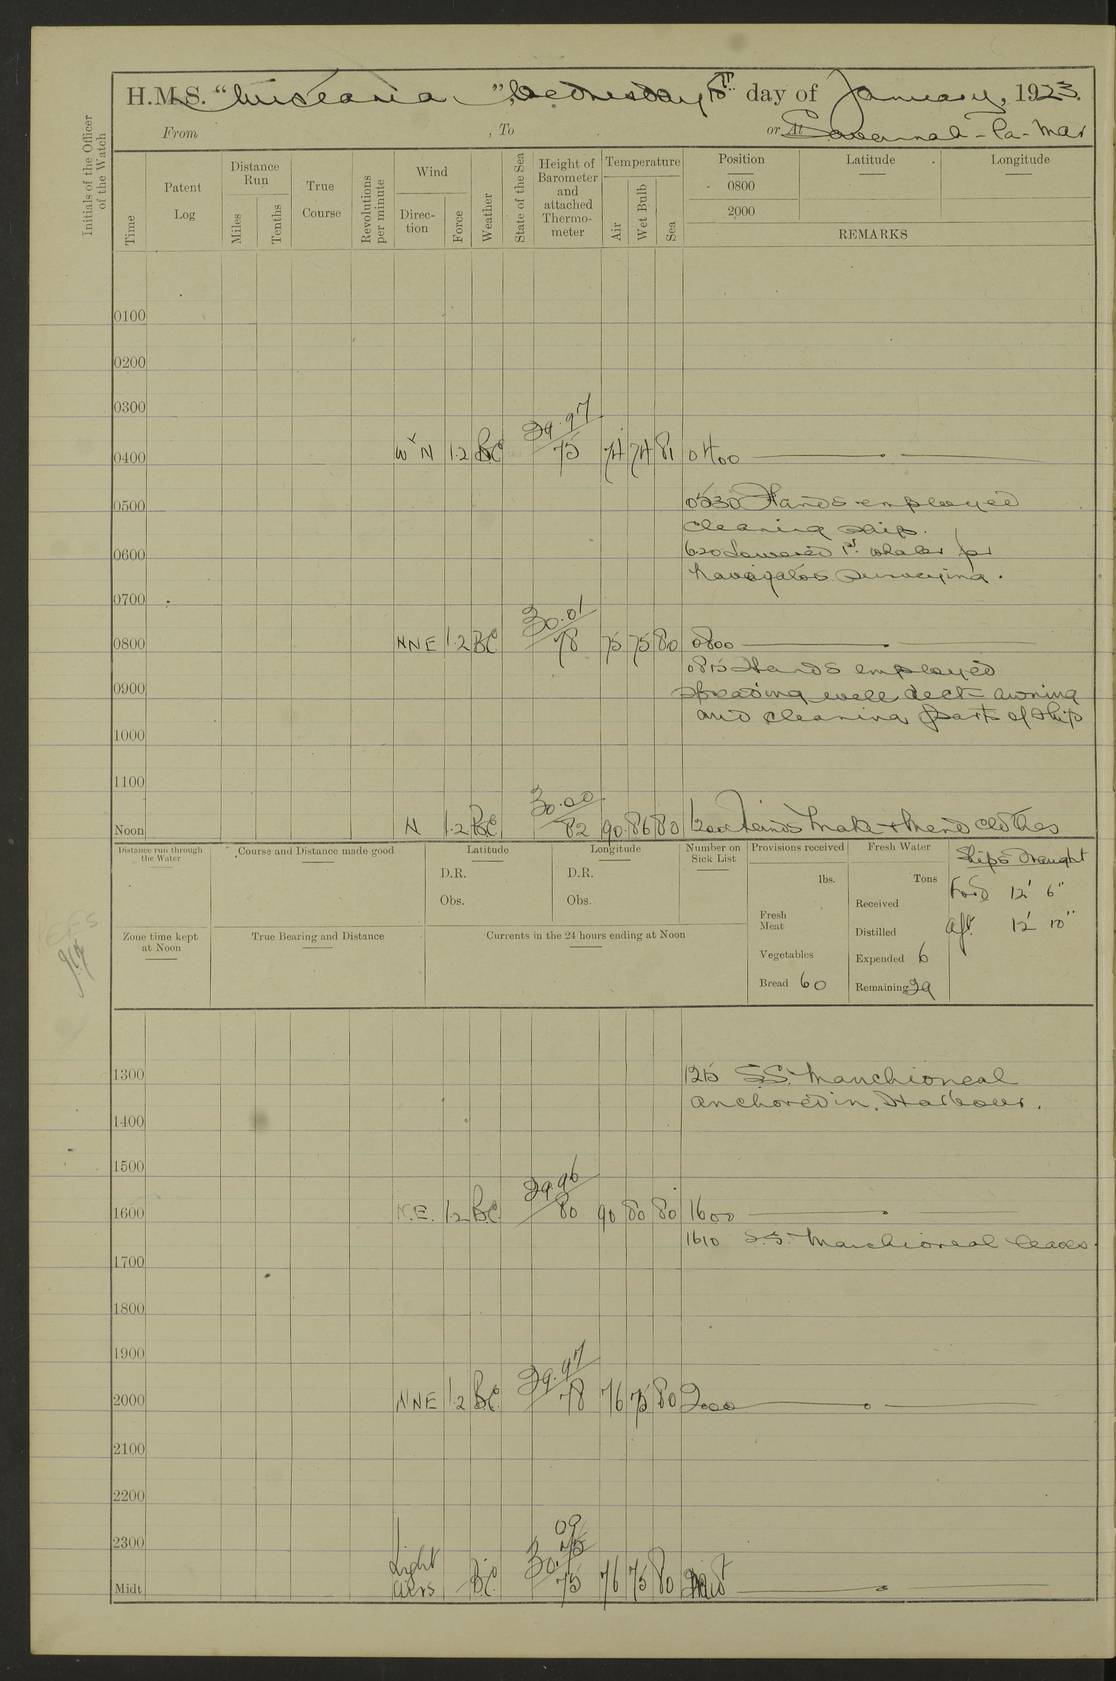 H.M.S. "Wistaria", Wednesday 10th day of January, 1923.
From , To or At Savannah-la-Mar
Initials of the Officer of the Watch
Time
Patent Log
Distance Run
Miles
Tenths
True Course
Revolutions per minute
Wind
Direction
Force
Weather
State of the Sea
Height of Barometer and attached Thermometer
Temperature
Air
Wet Bulb
Sea
Position
Latitude
Longitude
0800
2000
REMARKS
0100
0200
0300
0400 W N 1.2 BC 29.97 75 74 74 81 0400
0500 0530 Hands employed
cleaning ship.
0600 620 Lowered 1st whaler for
Navigators surveying.
0700
0800 NNE 1.2 BC 30.01 78 75 75 80 0800
0815 Hands employed
0900 spreading well deck awning
and cleaning parts of ship
1000
1100
Noon N 1.2 BC 30.00 82 90 86 80 1200 Hands Make & Mend clothes
Distance run through the Water
Course and Distance made good
Latitude
D.R.
Obs.
Longitude
D.R.
Obs.
Number on Sick List
Provisions received
lbs.
Fresh Meat
Vegetables
Bread 60
Fresh Water
Tons
Received
Distilled
Expended 6
Remaining 29
Ships Draught
Ford 12' 6"
Aft. 12' 10"
Zone time kept at Noon
True Bearing and Distance
Currents in the 24 hours ending at Noon
1300 1215 S.S. Manchioneal
anchored in Harbour.
1400
1500
1600 N.E. 1.2 B.C. 29.96 80 90 80 80 1600
1610 S.S. Manchioneal leaves.
1700
1800
1900
2000 NNE 1.2 B.C. 29.97 78 76 75 80 2000
2100
2200
2300
Midt Light airs BC 30.09 75 76 75 80